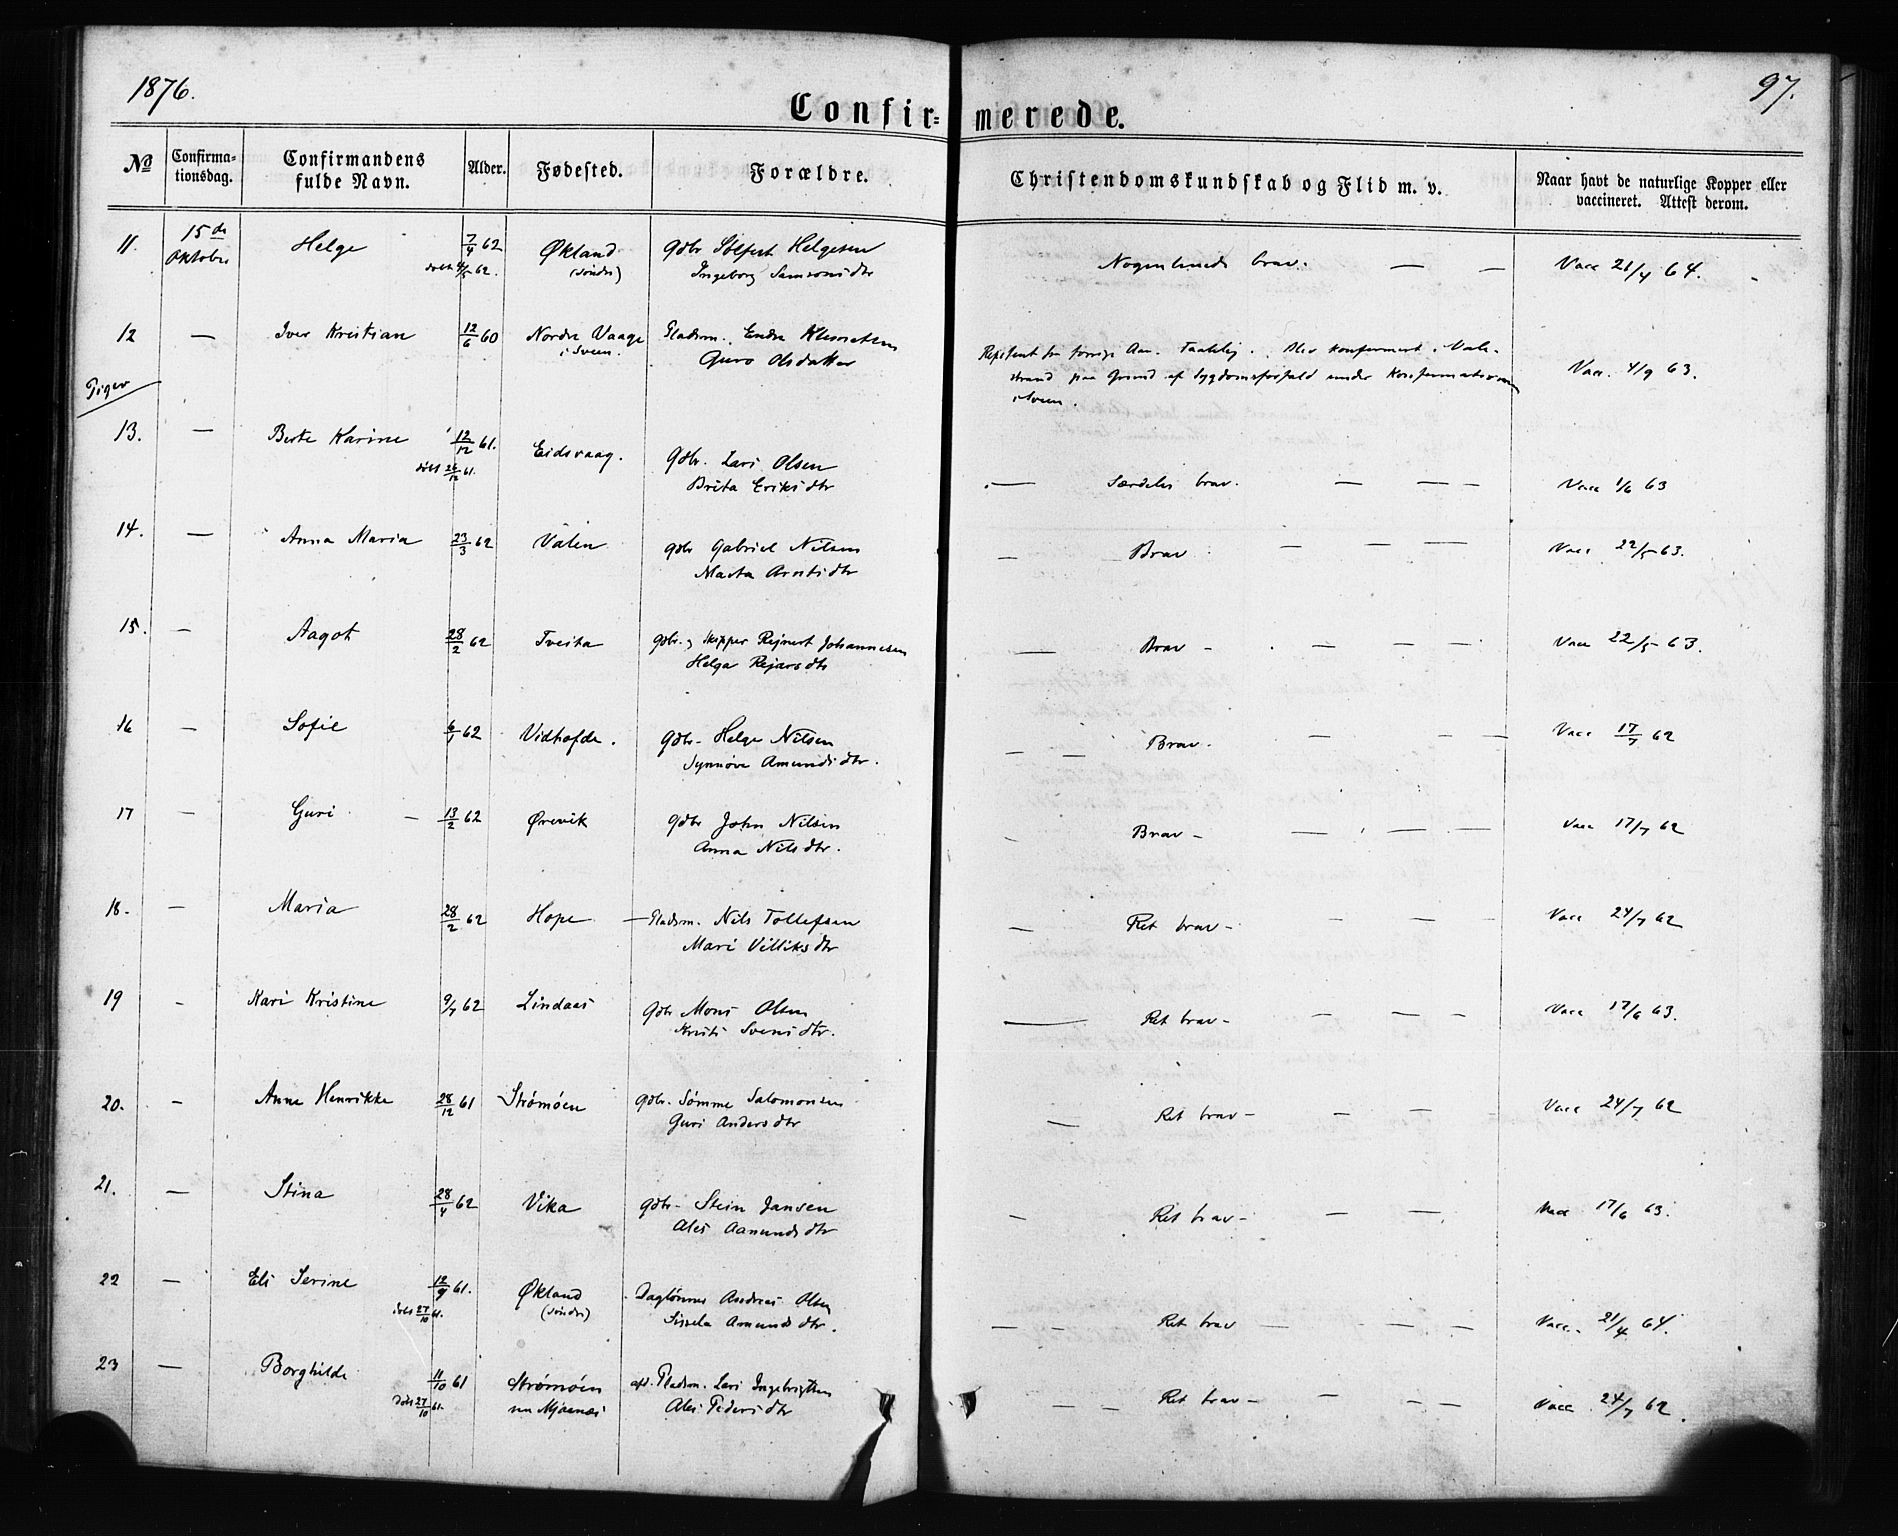 1876.
97.
Confir= merede.
No
Confirma-
tionsdag.
Confirmandens
fulde Navn.
Alder.
Fødested.
Forældre.
Christendomskundskab og Flid m. v.
Naar havt de naturlige Kopper eller
vaccineret. Attest derom.
11. 15de Helge 7/4 62 Økland Gdbr Helgesen Nogenlunde brav. — — Vacc 21/4 64.
Oktober døbt 62. (søndre) Ingeborg Samsonsdtr
12 — Iver Kristian 12/6 60 Nordre Vaage Pladsm. Endre
i Sveen. Guro Olsdatter
Repetent fra forrige Aar. Taalelig. Blev konfirmert i Vale-
strand paa Grund af Sygdomsforfald under Konfirmationen
i Sveen.
Vacc. 4/9 63.
Piger
13. — Berte Karine 12/12 61. Eidsvaag. Gdbr. Lars Olsen — Særdeles brav. — — — Vacc 1/6 63
døbt 26/12 61. Brita Eriksdtr
14. — Anna Maria 23/3 62 Valen Gdbr Gabriel Nilsen — Brav — — — Vacc 22/5 63.
Marta Arntsdtr
15. — Aagot 28/2 62 Tveita Gdbr. og Skipper Rejnert Johannesen — Brav — — — — Vacc 22/5 63.
Helga Rejarsdtr
16 — Sofie 6/1 62 Vidhofde. Gdbr. Helge Nilsen — — Brav. — — — Vacc 17/7 62
Synnøve Amundsdtr.
17 — Guri — 13/2 62 Ørevik Gdbr John Nilsen — Brav — — — — Vacc 17/7 62
Anna Nilsdtr.
18. — Maria 28/2 62 Hope — Pladsm. Nils Tollefsen — Ret brav — — — — Vacc 24/7 62
Mari Villiksdtr
19 — Kari Kristine 9/7 62 Lindaas Gdbr Mons Olsen — Ret brav — — — — Vacc 17/6 63.
Kristi Svensdtr.
20. — Anne Henrikke 28/12 61 Strømøen Gdbr. Sømme Salomonsen — Ret brav — — — — Vacc 24/7 62
Guri Andersdtr
21. — Stina 28/4 62 Vika Gdbr. Stein Jansen — Ret brav — — — Vacc 17/6 63.
Ales Aanundsdtr
22 — Eli Serine 12/9 61. Økland Daglønner Andreas Olsen — — Ret brav — — — Vacc. 21/4 64.
døbt 27/10 61. (søndre) Sissela Amundsdtr.
23 — Borghilde 11/10 61 Strømøen afd. Pladsm. Lars Ingebrigtsen — — Ret brav — — — — Vacc 24/7 62.
Døbt 27/10 61. nu Mjaanæs Ales Pedersdtr